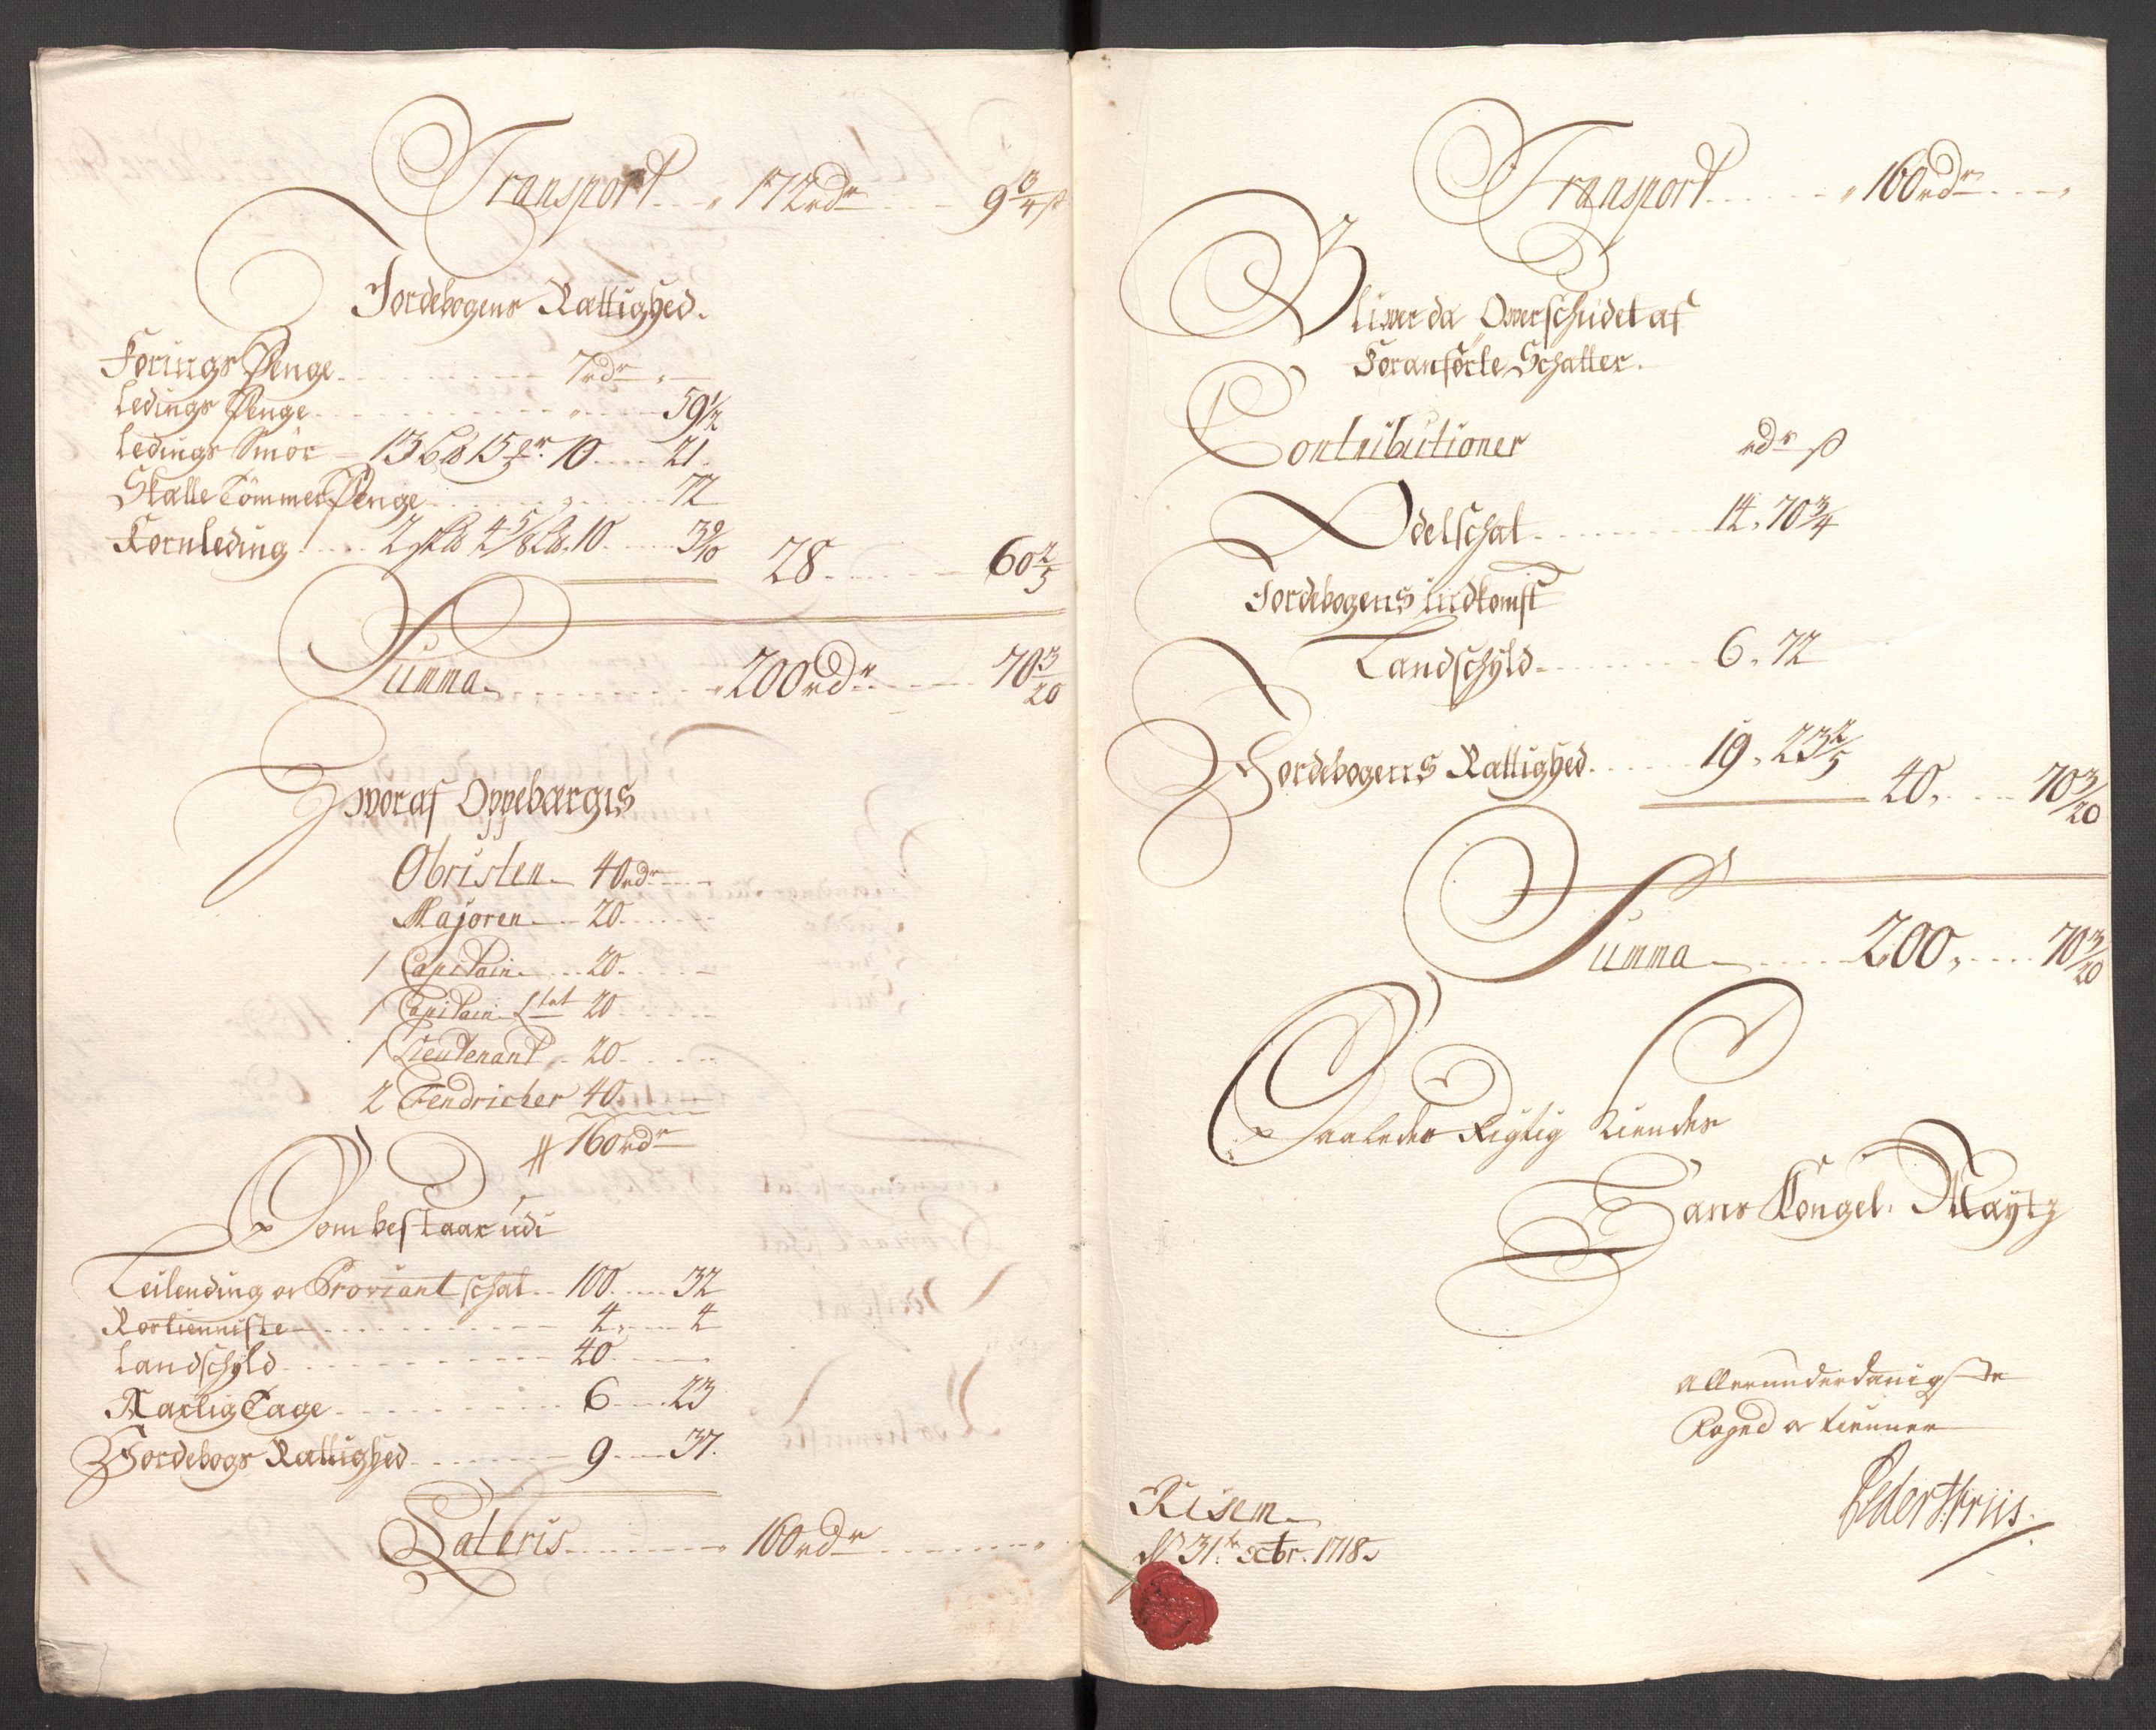 Transport 172 rdr 9 3/4 ß
Jordebogens Rættighed.
Forings Penge 7 rdr
Ledings Penge 59 1/2
Ledings Smör 13 15 10 21
Skatte Tömmer Penge 72
Kornleding 2 4 5/8 10 3 9/10 28 60 2/5
Summa 200 rdr 70 3/20
Hvoraf Oppebærgis
Obristen 40 rdr
Majoren 20
1 Capitain 20
1 Capitain Ltnt 20
1 Lieutenant 20
2 Fendricher 40
160 rdr
Som bestaar udi
Leilending og Proviant schat 100 32
Rostienniste 4 4
Landschyld 40
Aarlig Tage 6 23
Jordebogs Rættighed 9 37
Lateris 160 rdr
Transport 160 rdr
Bliver da Overschudet af
Foranförte Schatter.
Contributioner rdr ß
Odelschat 14. 70 3/4
Jordebogens indkomst
Landschyld 6. 72
Jordebogens Rættighed 19. 23 2/5 40. 70 3/20
Summa 200. 70 3/20
Saaledes Rigtig Kiendes
Hans Kongel. Maytz
allerunderdanigste
Foged og tienner
Peder Friis.
Risem
31te octbr. 1718.